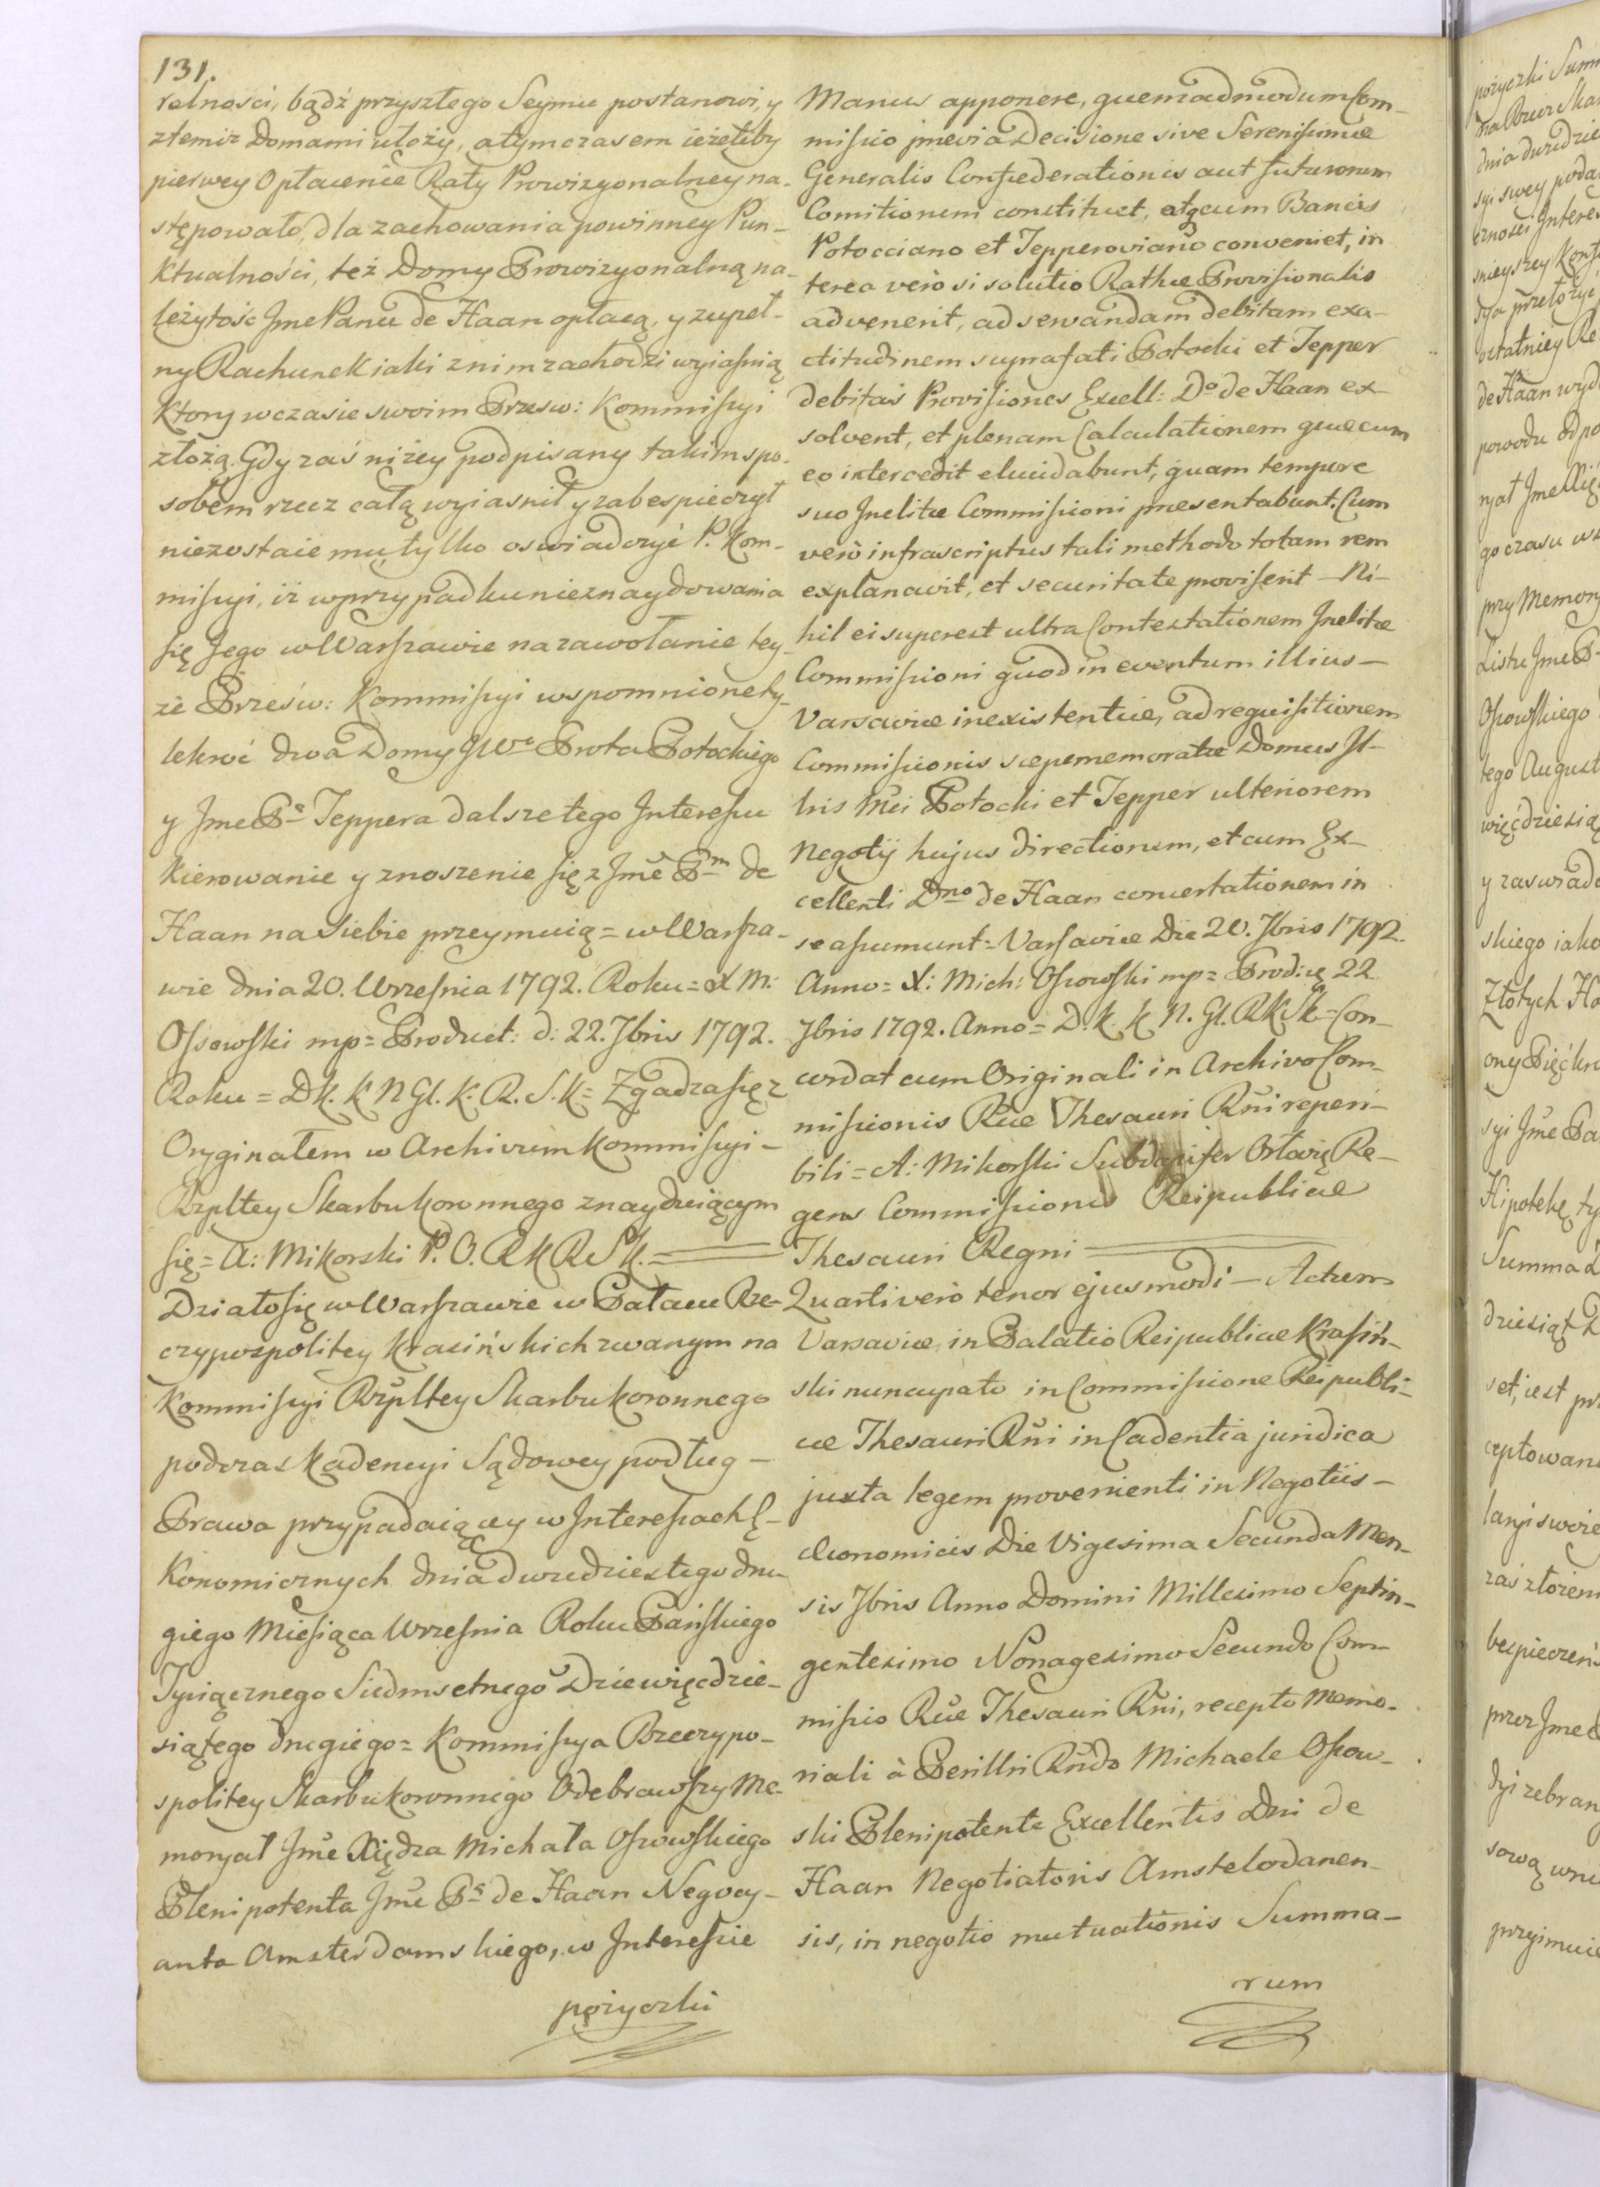 131.
ralnosci, bądź przyszłego Seymu postanowi, y
złemiż Domami ułoży, a tymczasem ieżeliby
pierwey Opłacenie Raty Prowizyonalney na-
stępowało, dla zachowania powinney Pun-
ktualności, też Domy Prowizyonalną na-
leżytość Jme Panu de Haan opłacą, y zupeł-
ny Rachunek iaki z nim zachodzi wyiaśnią
ktory w czasie swoim Przesw: Kommissyi
złożą. Gdy zaś niżey podpisany takim spo-
sobem rzecz całą wyiasnił y zabespieczył
niezostaie mu tylko oswiadczyć P. Kom-
missyi, iż w przypadku nieznaydowania
się Jego w Warszawie na zawołanie tey-
że Przesw: Kommissyi wspomnione ty-
lekroć dwa Domy JWo Prota Potockiego
y Jme Pa Teppera dalsze tego Interessu
kierowanie y znoszenie się z Jme Pm de
Haan na siebie przeymuią = w Warsza-
wie dnia 20. Września 1792. Roku = X M:
Ossowski mp = Product: d: 22. 7bris 1792.
Roku = D K. K N Gl. K. R. S. K = Zgadza się z
Oryginałem w Archivum Kommissyi -
Rzpltey Skarbu koronnego znayduiącym
się = A: Mikorski P. O. R K R S K. =
Działo się w Warszawie w Pałacu Rze-
czypospolitey Krasińskich zwanym na
Kommissyi Rzpltey Skarbu koronnego
podczas Kadencyi Sądowey podług -
Prawa przypadaiącey w Interessach E-
konomicznych dnia dwudziestego dru-
giego Miesiąca Września Roku Pańskiego
Tysiącznego Siedmsetnego Dziewięcdzie-
siątego drugiego = Kommissya Rzeczypo-
spolitey Skarbu koronnego Odebrawszy Me-
moryał Jme Xiędza Michała Ossowskiego
Plenipotenta Jme Pa de Haan Negocy-
anta Amsterdamskiego, w Interessie
pożyczki
Manus apponere, quemadmodum Com-
missio praevia Decisione sive Serenissimae
Generalis Confaederationis aut futurorum
Comitiorum constituet, atq cum Bancis
Potocciano et Tepperoviano conveniet, in
terea verò si solutio Rathae Provisionalis
advenerit, ad servandam debitam exa-
ctitudinem suprafati Potocki et Tepper
debitas Provisiones Excell: Do de Haan ex-
solvent, et plenam Calculationem quae cum
eo intercedit elucidabunt, quam tempore
suo Inclitae Commissioni praesentabunt. Cum
verò infrascriptus tali methodo totam rem
explanavit, et securitate proviserit - Ni-
hil ei superest ultra Contestationem Inclitae
Commissioni quod in eventum illius -
Varsaviae inexistentiae, ad requisitionem
Commissionis saepememoratae Domus Il-
lris Mei Potocki et Tepper ulteriorem
Negotij hujus directionem, et cum Ex-
cellenti Dno de Haan concertationem in
se assumunt = Varsaviae Die 20. 7bris 1792.
Anno = X: Mich: Ossowski mp = Prod: ię 22
7bris 1792. Anno = D. K. K N. Gl. R K S K = Con-
cordat cum Originali in Archivo Com-
missionis Rcae Thesauri Rni reperi-
bili = A: Mikorski Subdapifer Ostavię Re-
gens Commissionis Reipublicae
Thesauri Regni
Quarti verò tenor ejusmodi - Actum
Varsaviae, in Palatio Reipublicae Krasiń-
ski nuncupato in Commissione Reipubli-
cae Thesauri Rni in Cadentia juridica
juxta legem provenienti in Negotiis -
Oeconomicis Die Vigesima Secunda Men-
sis 7bris Anno Domini Millesimo Septin-
gentesimo Nonagesimo Secundo Com-
missio Rcae Thesauri Rni, recepto Memo-
riali à Perillri Rndo Michaele Ossow-
ski Plenipotente Excellentis Dni de
Haan Negotiatoris Amstelodamen-
sis, in negotio mutuationis Summa-
rum